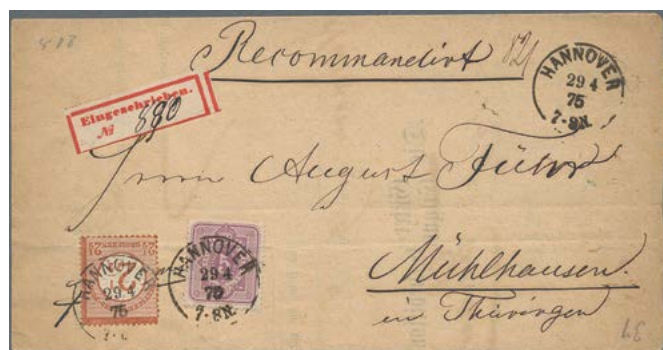 Recommandirt
HANNOVER
29 4
75
7-8N.
Eingeschrieben.
№ 890
Herrn August Führ
Mühlhausen.
in Thüringen
HANNOVER
29.4
75
HANNOVER
29.4
75
7-8N.
37